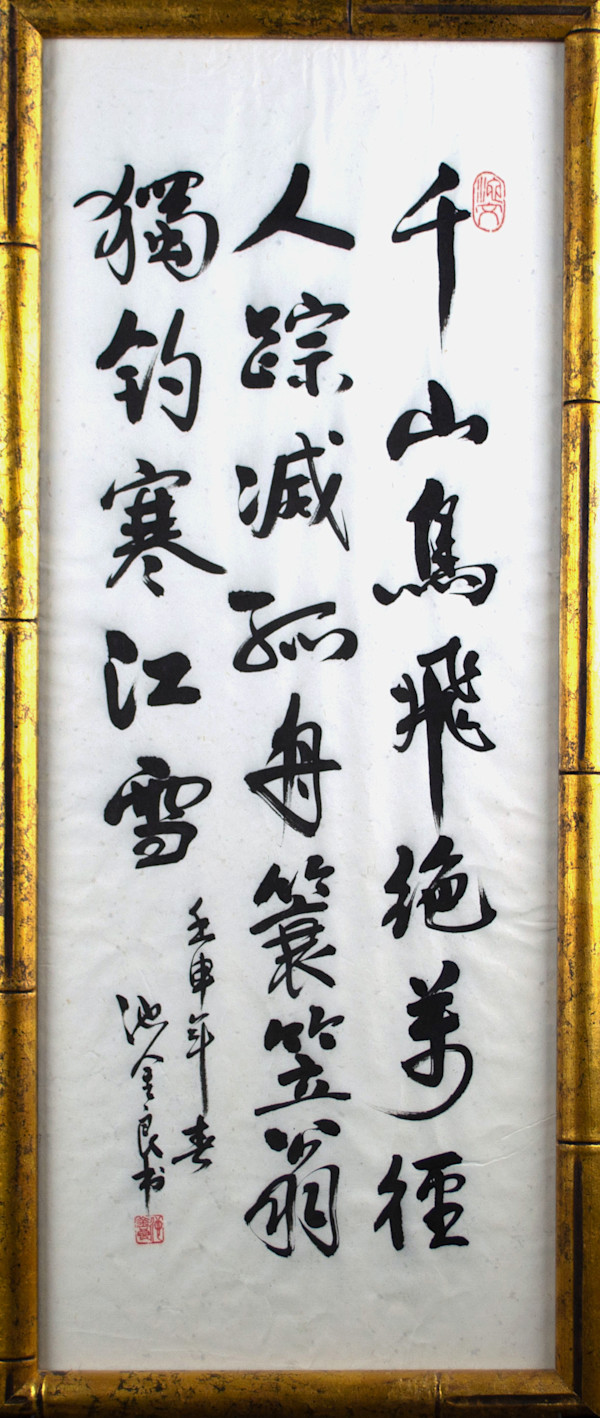 千山鳥飛絶萬徑
人踪滅孤舟簑笠翁
獨釣寒江雪
壬申年春
池金良书